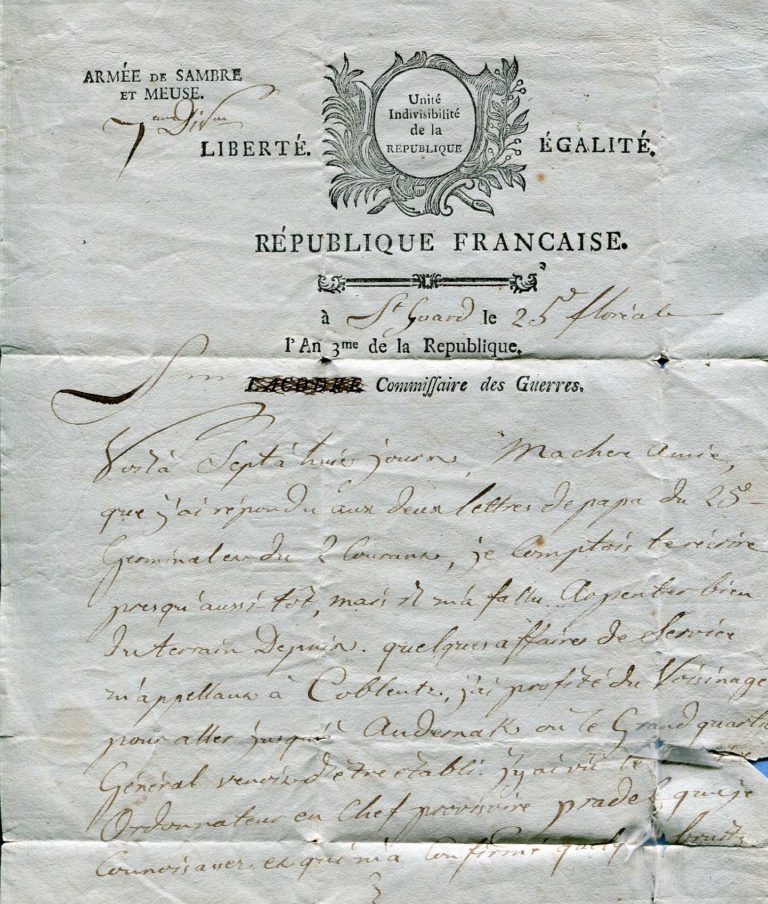 ARMÉE DE SAMBRE
ET MEUSE.
7eme Dion
Unité
Indivisibilité
de la
REPUBLIQUE
LIBERTÉ. ÉGALITÉ.
RÉPUBLIQUE FRANCAISE.
à St Goard le 25e floréale
l'An 3me de la Republique.
LACODRE Commissaire des Guerres.
Voilà Sept à huit jours, Ma chere Amie,
que j'ai répondu aux deux lettres de papa du 25e
Germinal et du 2 Courant, je Comptois te récrire
presqu'aussi-tôt, mais il m'a fallu Arpenter bien
du terrain Depuis. quelques affaires de Service
m'appellant à Coblentz, j'ai profité du Voisinage
pour aller jusqu'à Andernak où le Grand quartier
Général venoit d'etre établi. j'y ai vû le
Ordonnateur en Chef provisoire pradel que je
Connoissois et qui m'a Confirmé bruits